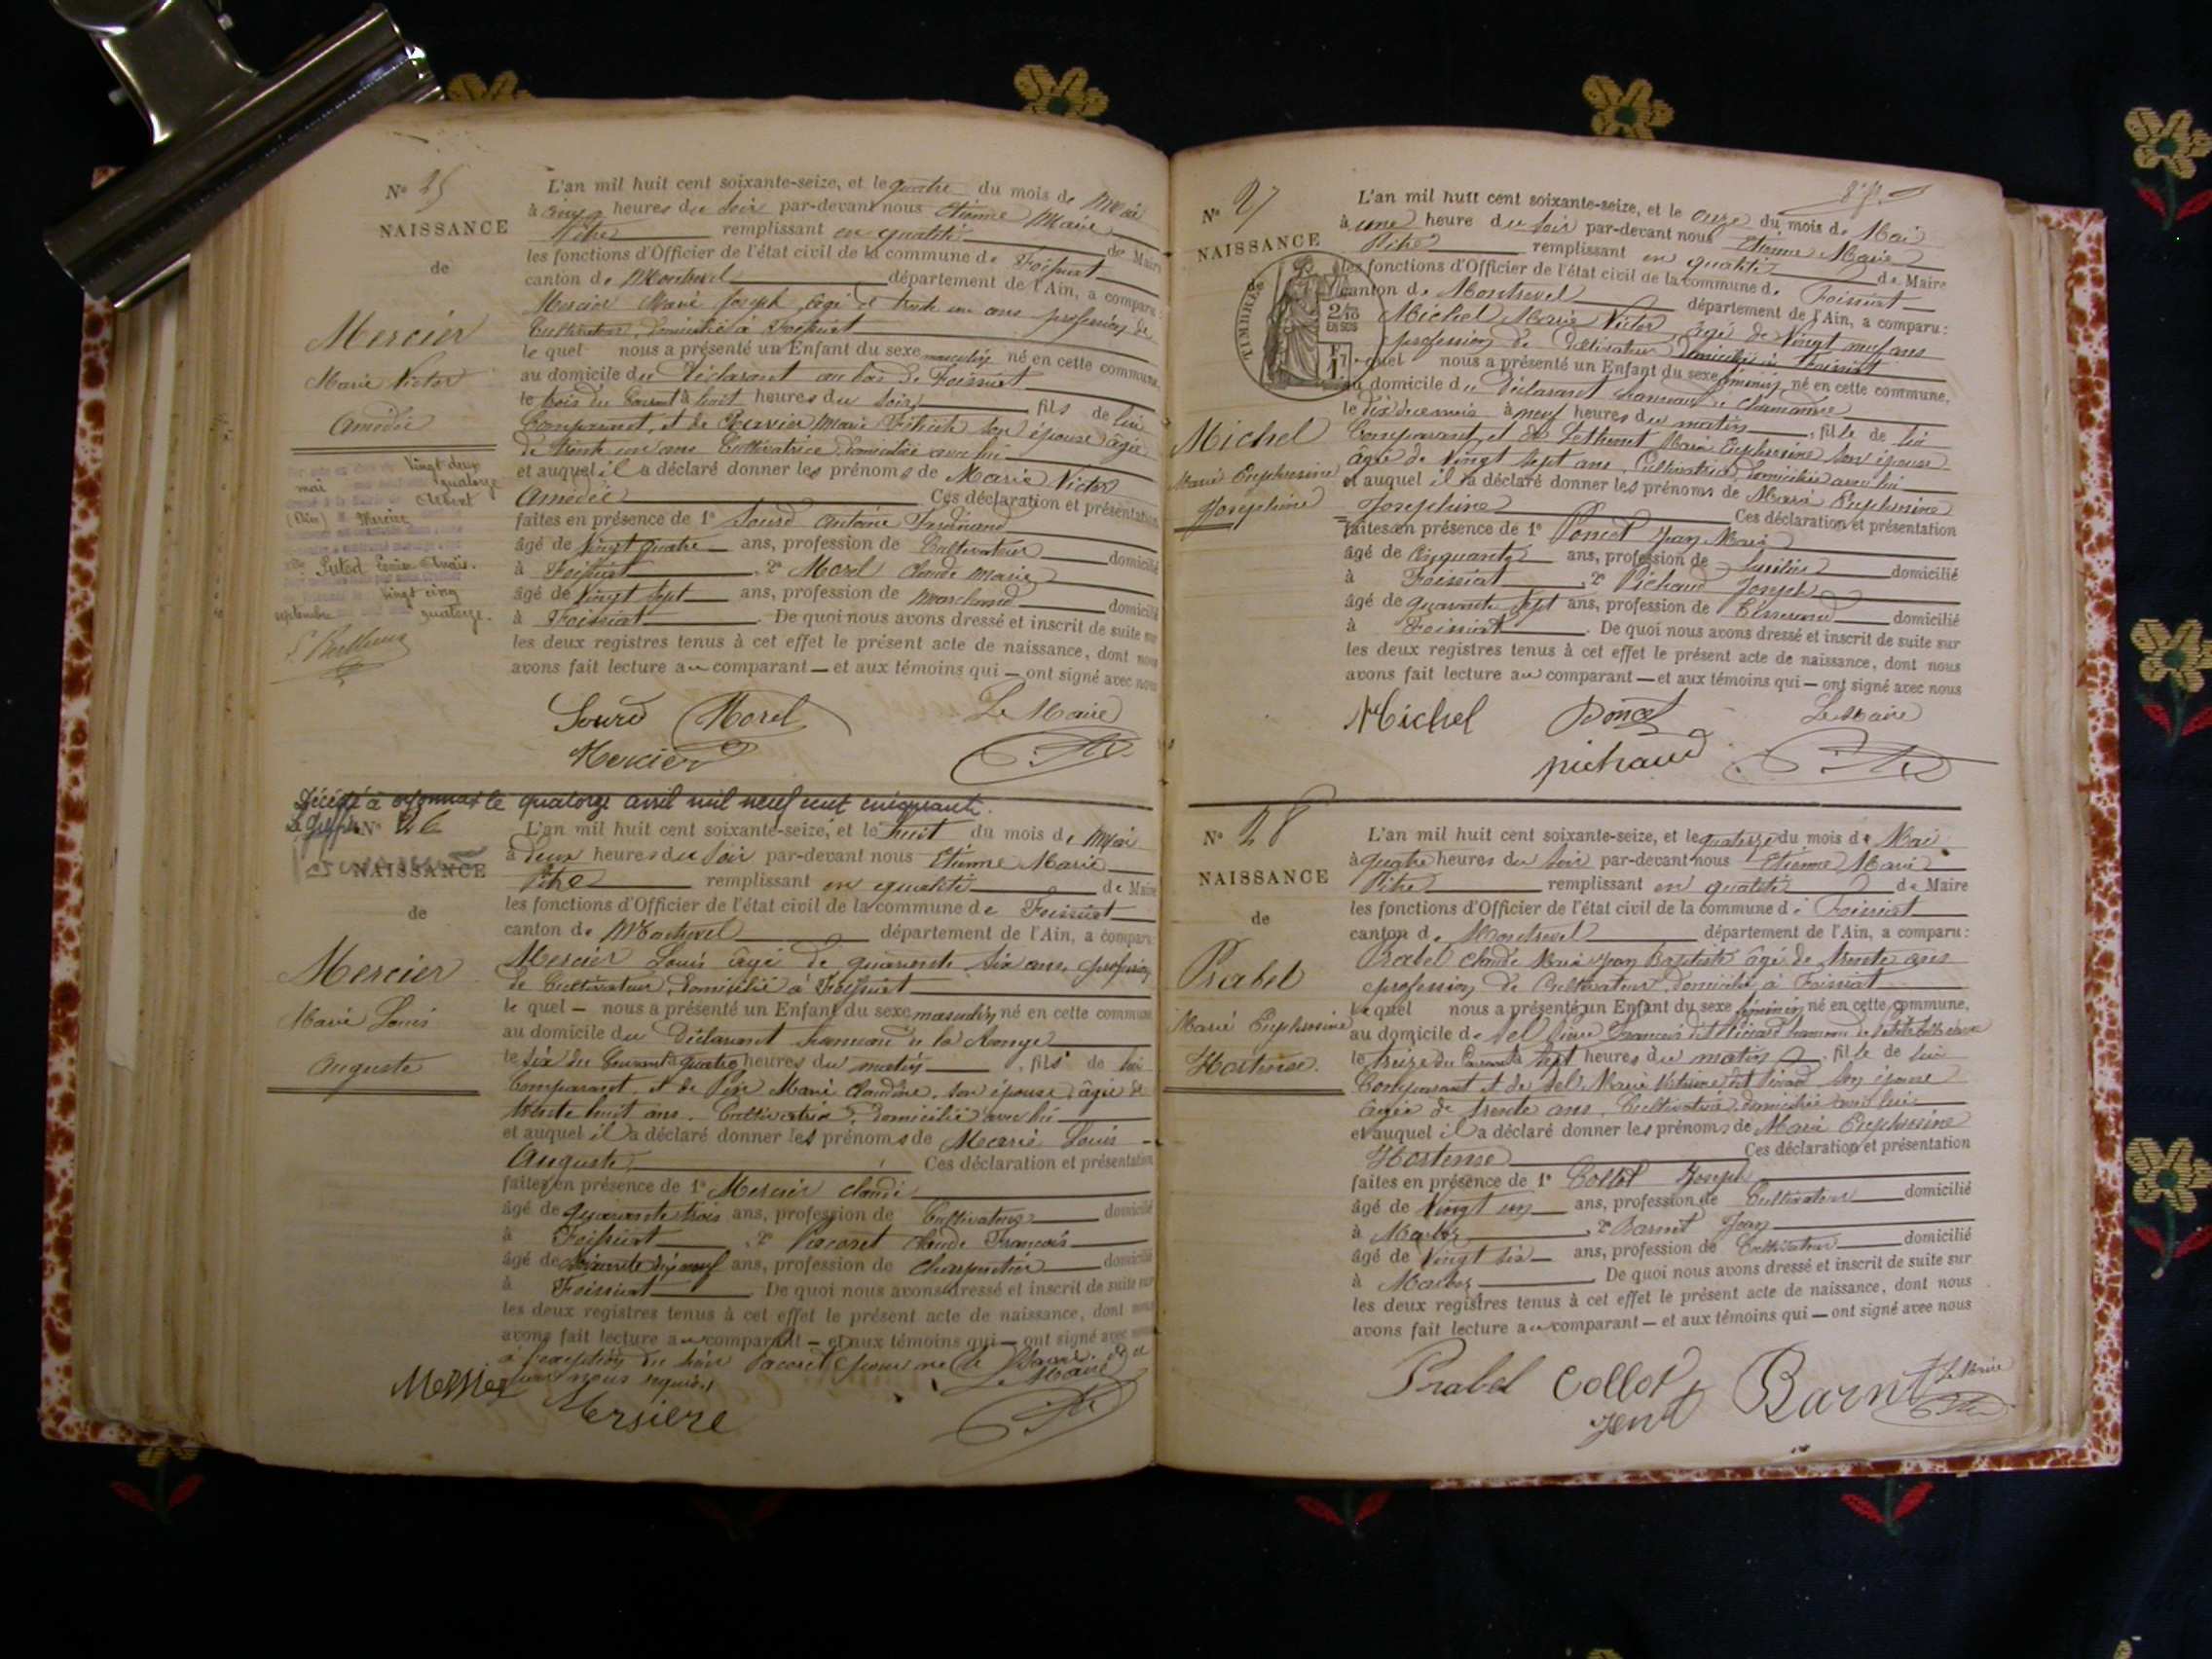 N° 25
NAISSANCE
de
Mercier
Marie Victor
Amédée
L'an mil huit cent soixante-seize, et le quatre du mois de Mai
à cinq heures du soir par-devant nous Etienne Marie
Pitre remplissant en qualité de Maire
les fonctions d'Officier de l'état civil de la commune de Foissiat
canton de Montrevel département de l'Ain, a comparu :
Mercier Marie Joseph, âgé de trente un ans profession de
Cultivateur, domicilié à Foissiat
le quel nous a présenté un Enfant du sexe masculin né en cette commune,
au domicile du Déclarant au bois de Foissiat
le trois du Courant à huit heures du soir, fils de lui
Comparant, et de Marie son épouse âgée
de trente un ans Cultivatrice, domiciliée avec lui
et auquel il a déclaré donner les prénoms de Marie Victor
Amédée Ces déclaration et présentation
faites en présence de 1° Sourd Antoine Ferdinand
âgé de vingt quatre ans, profession de Cultivateur domicilié
à Foissiat, 2° Morel Claude Marie
âgé de vingt sept ans, profession de Marchand domicilié
à Foissiat. De quoi nous avons dressé et inscrit de suite sur
les deux registres tenus à cet effet le présent acte de naissance, dont nous
avons fait lecture au comparant — et aux témoins qui — ont signé avec nous
Sourd Morel Le Maire
Mercier
vingt deux
mai quatorze
(Ain) Mercier
vingt cinq
septembre quatorze.
Décédé à Oyonnax le quatorze avril mil neuf cent cinquante.
N° 26
NAISSANCE
de
Mercier
Marie Louis
Auguste
L'an mil huit cent soixante-seize, et le huit du mois de Mai
à deux heures du soir par-devant nous Etienne Marie
Pitre remplissant en qualité de Maire
les fonctions d'Officier de l'état civil de la commune de Foissiat
canton de Montrevel département de l'Ain, a comparu
Mercier Louis âgé de quarante six ans, profession
de Cultivateur, domicilié à Foissiat
le quel — nous a présenté un Enfant du sexe masculin né en cette commune
au domicile du Déclarant hameau de la
le six du Courant à quatre heures du matin, fils de lui
Comparant, et de Marie Claudine, son épouse, âgée de
trente huit ans. Cultivatrice, domiciliée avec lui
et auquel il a déclaré donner les prénoms de Marie Louis
Auguste Ces déclaration et présentation
faites en présence de 1° Mercier Claude
âgé de quarante trois ans, profession de Cultivateur domicilié
à Foissiat, 2° Pacoret Claude François
âgé de soixante dix neuf ans, profession de Charpentier domicilié
à Foissiat De quoi nous avons dressé et inscrit de suite sur
les deux registres tenus à cet effet le présent acte de naissance, dont nous
avons fait lecture au comparant — et aux témoins qui — ont signé avec nous
à l'exception du Pacoret pour ne le savoir
Le Maire
Mersiere
N° 27
NAISSANCE
TIMBRES
2/10
EN SUS
Michel
Marie Euphrosine
Josephine
L'an mil huit cent soixante-seize, et le onze du mois de Mai
à une heure du soir par-devant nous Etienne Marie
Pitre remplissant en qualité de Maire
les fonctions d'Officier de l'état civil de la commune de Foissiat
canton de Montrevel département de l'Ain, a comparu :
Michel Marie Victor, âgé de Vingt neuf ans
profession de Cultivateur domicilié à Foissiat
le quel nous a présenté un Enfant du sexe féminin né en cette commune,
au domicile du Déclarant hameau de
le dix du mois à neuf heures du matin, fille de lui
Comparant et de Marie Euphrosine son épouse
âgée de vingt sept ans, Cultivatrice, domiciliée avec lui
et auquel il a déclaré donner les prénoms de Marie Euphrosine
Josephine Ces déclaration et présentation
faites en présence de 1° Poncet Jean Marie
âgé de Cinquante ans, profession de domicilié
à Foissiat, 2° Pichaud Joseph
âgé de quarante sept ans, profession de Tisserand domicilié
à Foissiat. De quoi nous avons dressé et inscrit de suite sur
les deux registres tenus à cet effet le présent acte de naissance, dont nous
avons fait lecture au comparant — et aux témoins qui — ont signé avec nous
Michel Poncet Le Maire
pichaud
N° 28
NAISSANCE
de
Prabel
Marie Euphrosine
Hortense.
L'an mil huit cent soixante-seize, et le quatorze du mois de Mai
à quatre heures du soir par-devant nous Etienne Marie
Pitre remplissant en qualité de Maire
les fonctions d'Officier de l'état civil de la commune de Foissiat
canton de Montrevel département de l'Ain, a comparu :
Prabel Claude Marie Jean Baptiste âgé de trente ans
profession de Cultivateur, domicilié à Foissiat
le quel nous a présenté un Enfant du sexe féminin né en cette commune,
au domicile de François hameau de
le treize du Courant à sept heures du matin, fille de lui
Comparant et de Marie son épouse
âgée de trente ans, Cultivatrice, domiciliée avec lui
et auquel il a déclaré donner les prénoms de Marie Euphrosine
Hortense Ces déclaration et présentation
faites en présence de 1° Collot Joseph
âgé de Vingt un ans, profession de Cultivateur domicilié
à Marboz, 2° Barnet Jean
âgé de Vingt six ans, profession de Cultivateur domicilié
à Marboz. De quoi nous avons dressé et inscrit de suite sur
les deux registres tenus à cet effet le présent acte de naissance, dont nous
avons fait lecture au comparant — et aux témoins qui — ont signé avec nous
Prabel Collot Le Maire